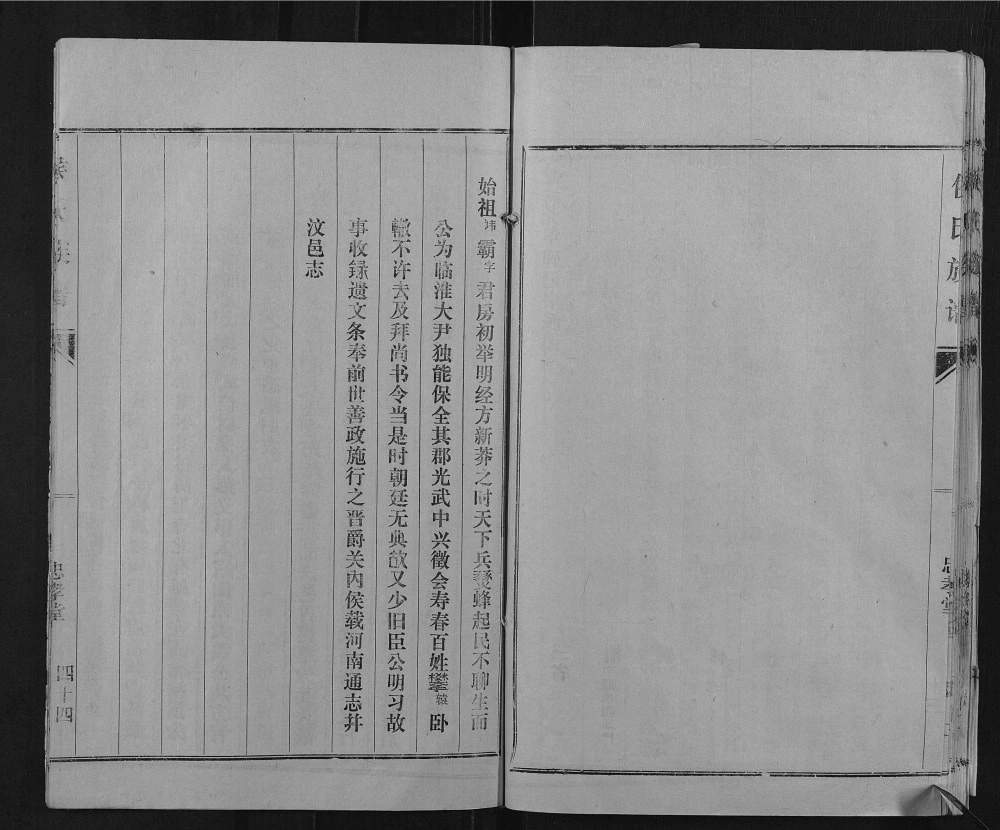 氏族谱
忠孝堂
始祖讳霸字君房初举明经方新莽之时天下兵燹蜂起民不聊生而
公为临淮大尹独能保全其郡光武中兴徵会寿春百姓攀辕卧
辙不许去及拜尚书令当是时朝廷无典故又少旧臣公明习故
事收録遗文条奉前世善政施行之晋爵关内侯载河南通志幷
汶邑志
忠孝堂
四十四